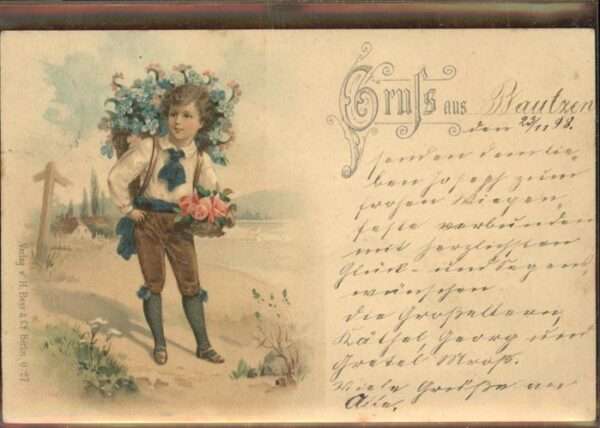 Gruss aus Bautzen
den 23/11 98.
senden dem lie-
ben Joseph zum
frohen Wiegen-
feste verbunden
mit herzlichsten
Glück- und Segens
wünschen
die Großeltern,
Käthel Georg und
Gretel Mros.
Viele Grüße an
Alle.
Verlag v. H. Berlin.